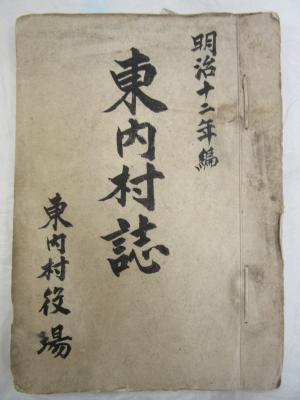 明治十二年編
東内村誌
東内村役場